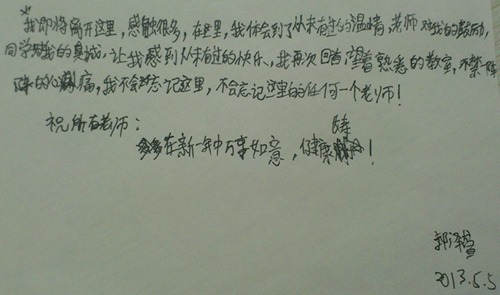 我即将离开这里，感触很多，在这里，我体会到了从未有过的温情，老师对我的鼓励，
同学对我的真诚，让我感到从未有过的快乐，我再次回首望着熟悉的教室，不禁一阵
阵的心痛，我不会忘记这里，不会忘记这里的任何一个老师！
祝所有老师：
在新一年中万事如意，健康长寿！
郭泽雪
2013.5.5